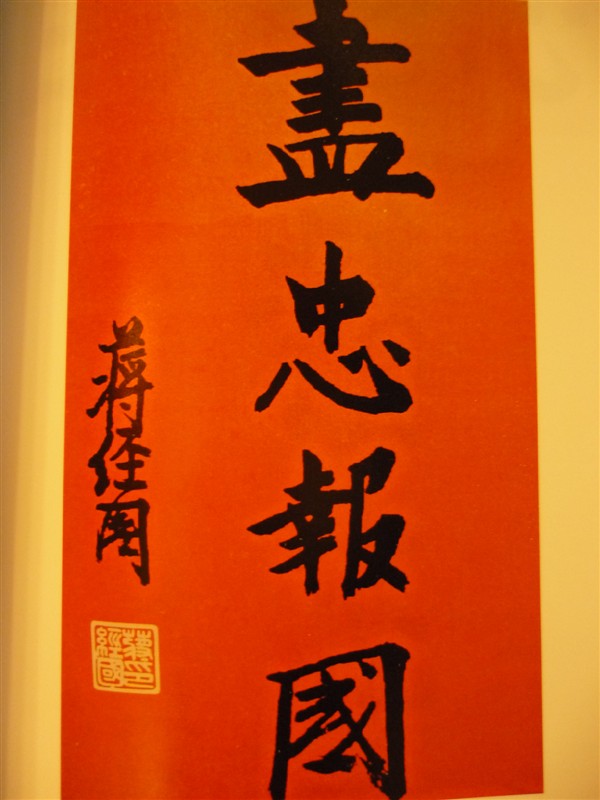 盡忠報國
蔣經國
蔣經國印